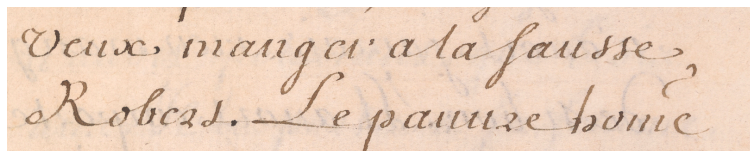 veux manger a la sausse
Robers. Le pauure home